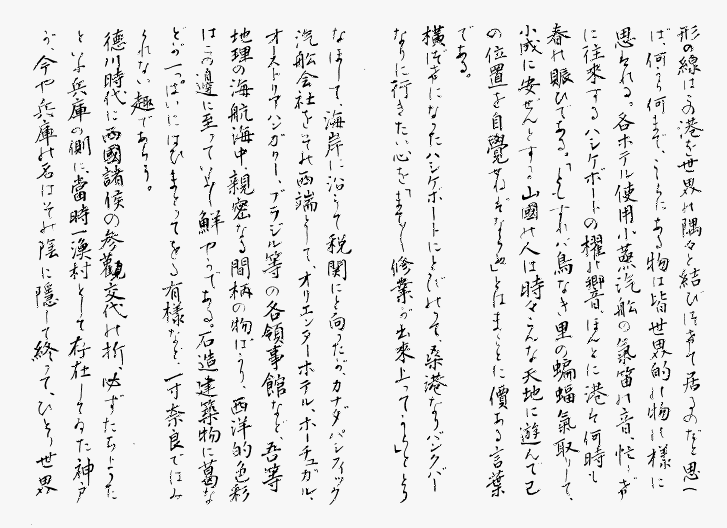 形の線はこの港を世界の隅々と結びつけて居るのだなと思へ
ば、何から何まで、こゝにある物は皆世界的の物の様に
思はれる。各ホテル使用小蒸汽船の氣笛の音、忙しげ
に往来するハシケボートの櫂の響、ほんとに港は何時も
春の賑ひである。「ともすれば鳥なき里の蝙蝠氣取りして、
小成に安ぜんとする山國の人は時々こんな天地に遊んで己
の位置を自覺せねばならぬ」とはまことに價ある言葉
である。
横づけになったハシケボートにとびのって桑港なりバンクバー
なりに行きたい心を「まてまて修業が出來上ってから」ととゞ
なほして、海岸に沿うて税関にと向ったが、カナダパシフィック
汽船会社をその西端として、オリエンターホテル、ポーチュガル、
オーストリアハンガリー、ブラジル等の各領事館など、吾等
地理の海航海中親密なる間柄の物ばかり、西洋的色彩
はこの邊に至っていよいよ鮮やかである。石造建築物に葛な
どが一っぱいにはひまとってをる有様など、一寸奈良ではみ
られない趣であらう。
徳川時代に西國諸侯の参觀交代の折、必ずたちよった
といふ兵庫の側に、當時一漁村として存在してゐた神戸
が、今や兵庫の名はその陰に隠して終って、ひとり世界